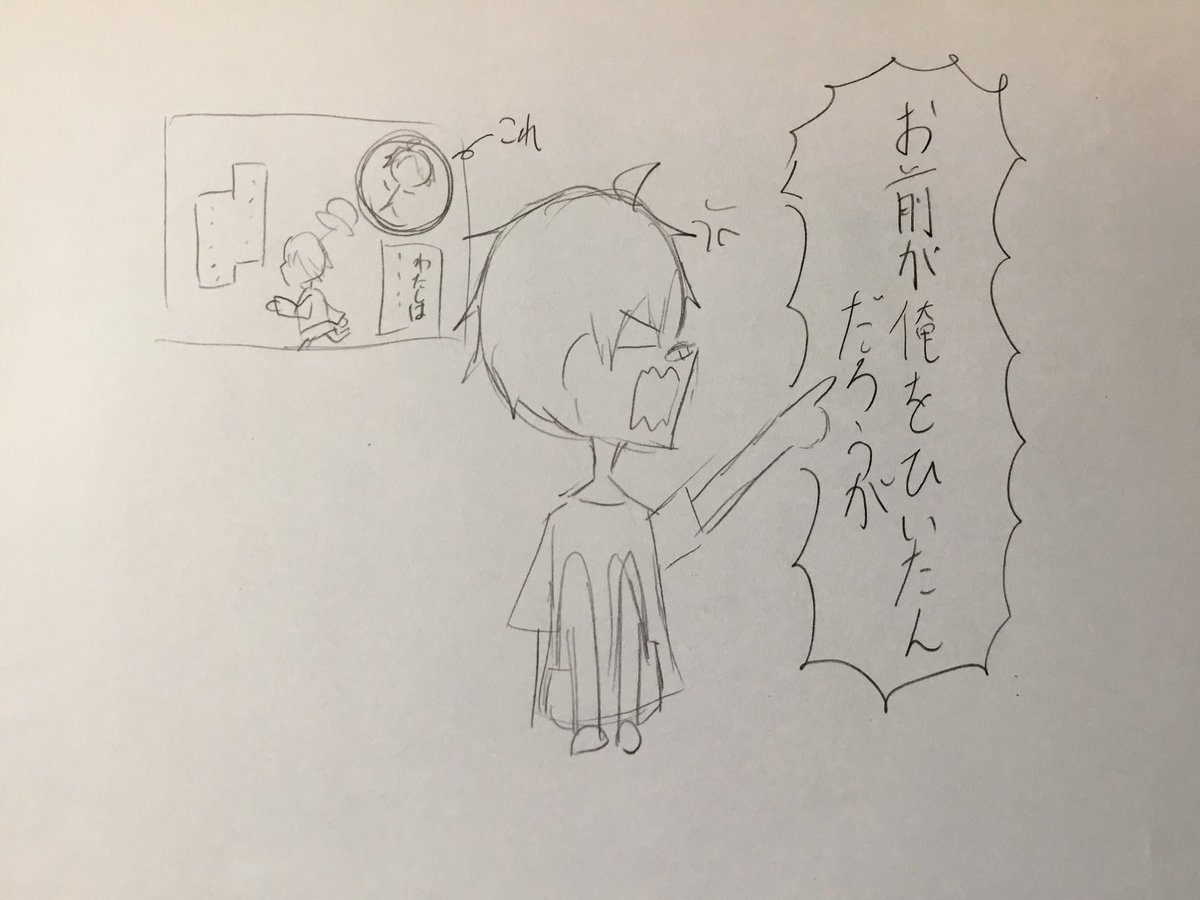 お前が俺をひいたん
だろうが
これ
わたしは